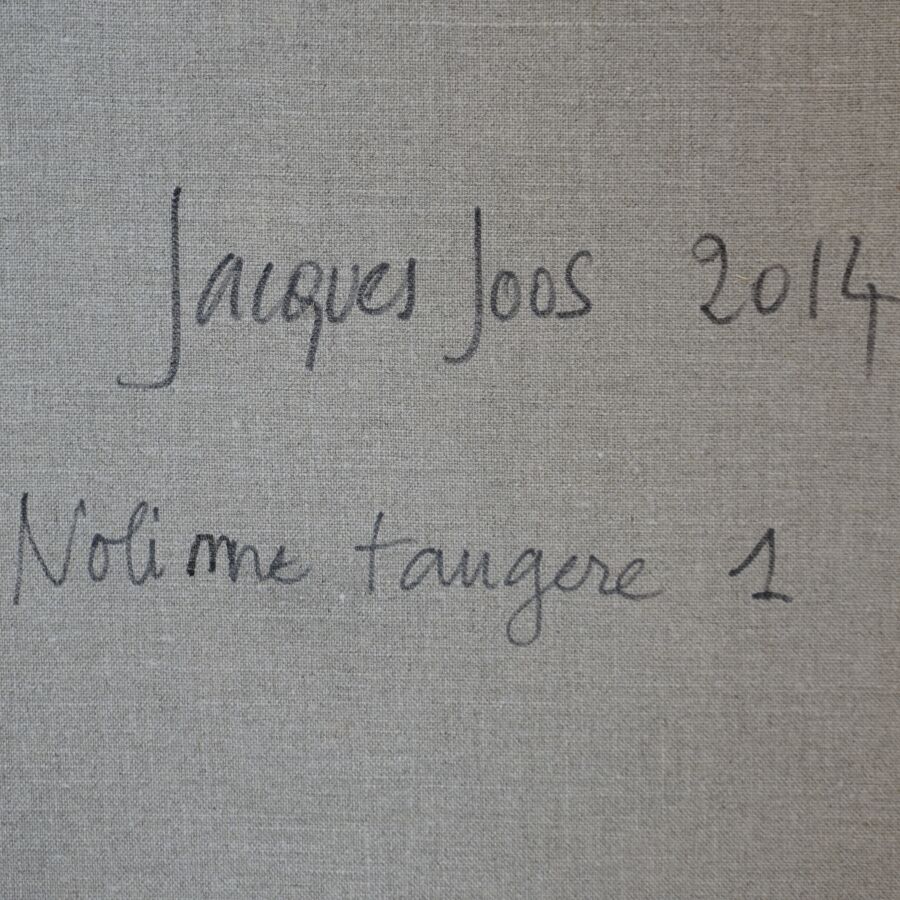 Jacques Joos 2014
Noli me tangere 1